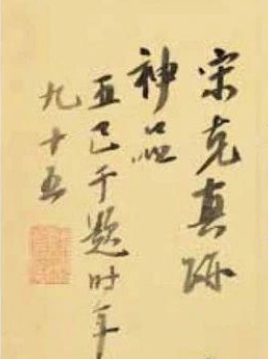 宋克真跡
神品
五己千题时年
九十五